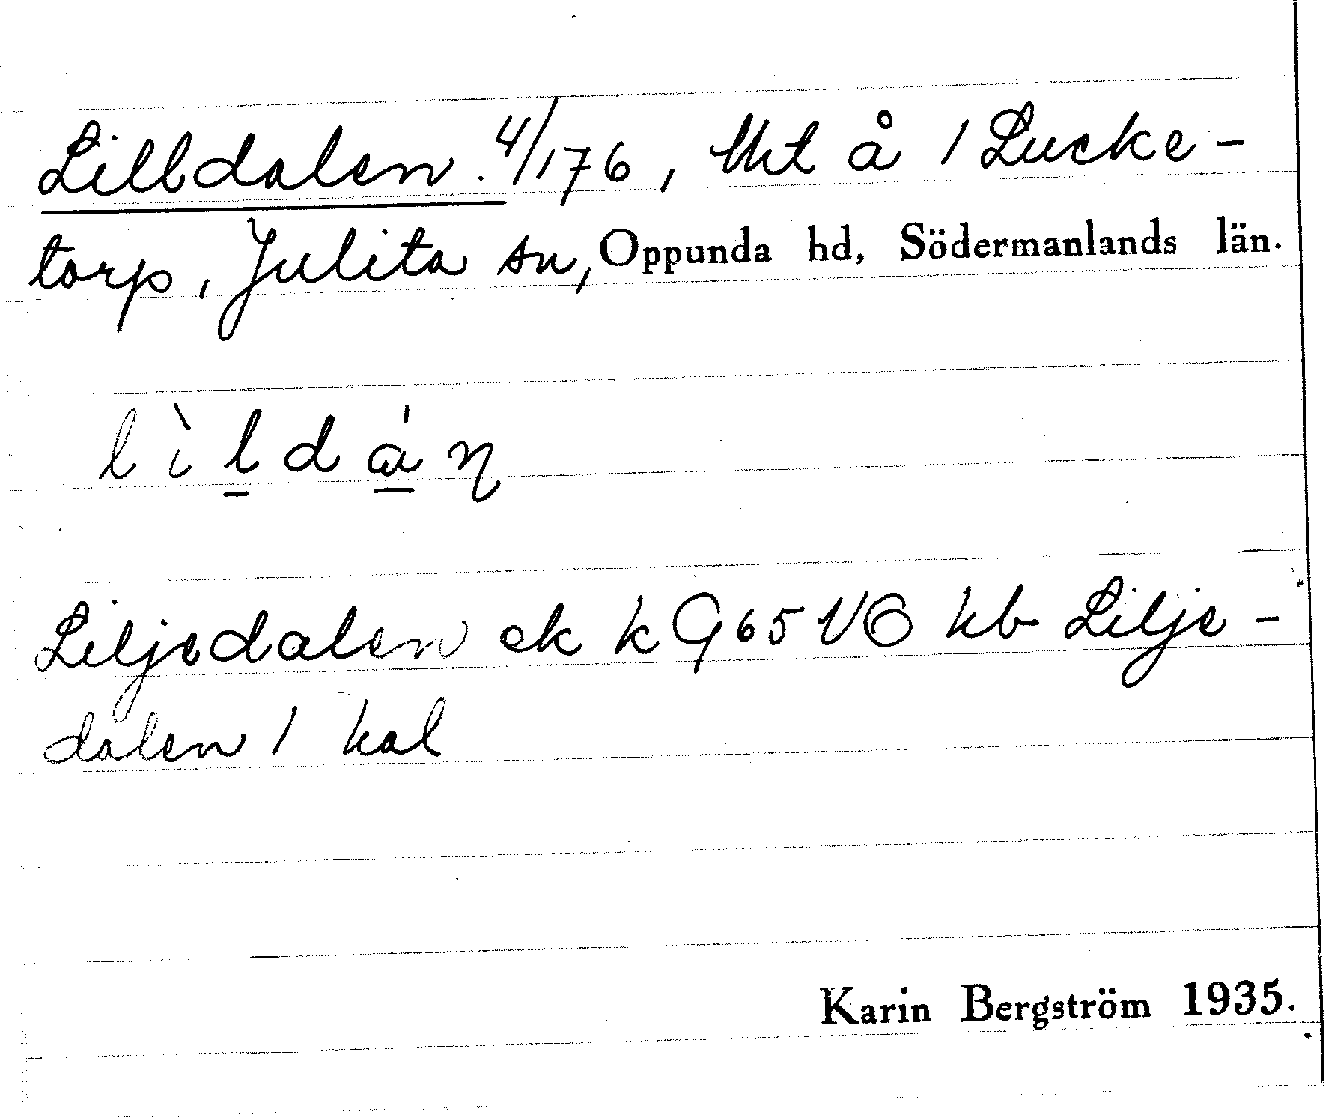 Lilldalen. 4/176, lht å 1 Lucke-
torp, Julita sn, Oppunda hd, Södermanlands län.
lìldán
Liljedalen ek k G65 VÖ hb Lilje-
dalen 1 kal
Karin Bergström 1935.